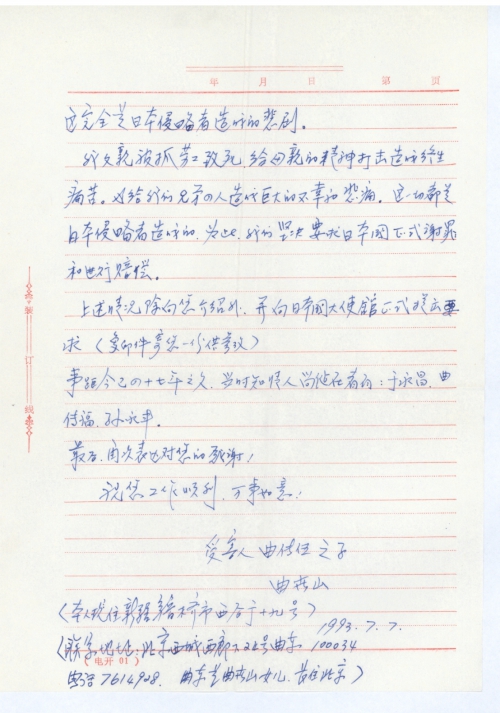 年 月 日 第 页
这完全是日本侵略者造成的悲剧。
我父亲被抓劳工致死,给母亲的精神打击造成终生
病苦。对给我们兄弟四人造成巨大的不幸和悲痛。这一切都是
日本侵略者造成的,为此,我们坚决要求日本国正式谢罪
和进行赔偿。
上述情况除向您介绍外,并向日本国大使馆正式提出要
求(复印件寄您一份供参议)
事距今已四十七年之久,当时知情人尚健在者有:于永昌、曲
传福、孙永丰。
最后,再次表达对您的致谢!
祝您工作顺利,万事如意!
受害人 曲传任 之子
曲 山
(本人现住新疆 市西 十九号)
1993.7.7.
(联系地址:北京西城西 22号曲东 100034
电话7614928. 曲东是曲 山女儿,长住北京)
(电开 01)
装订线